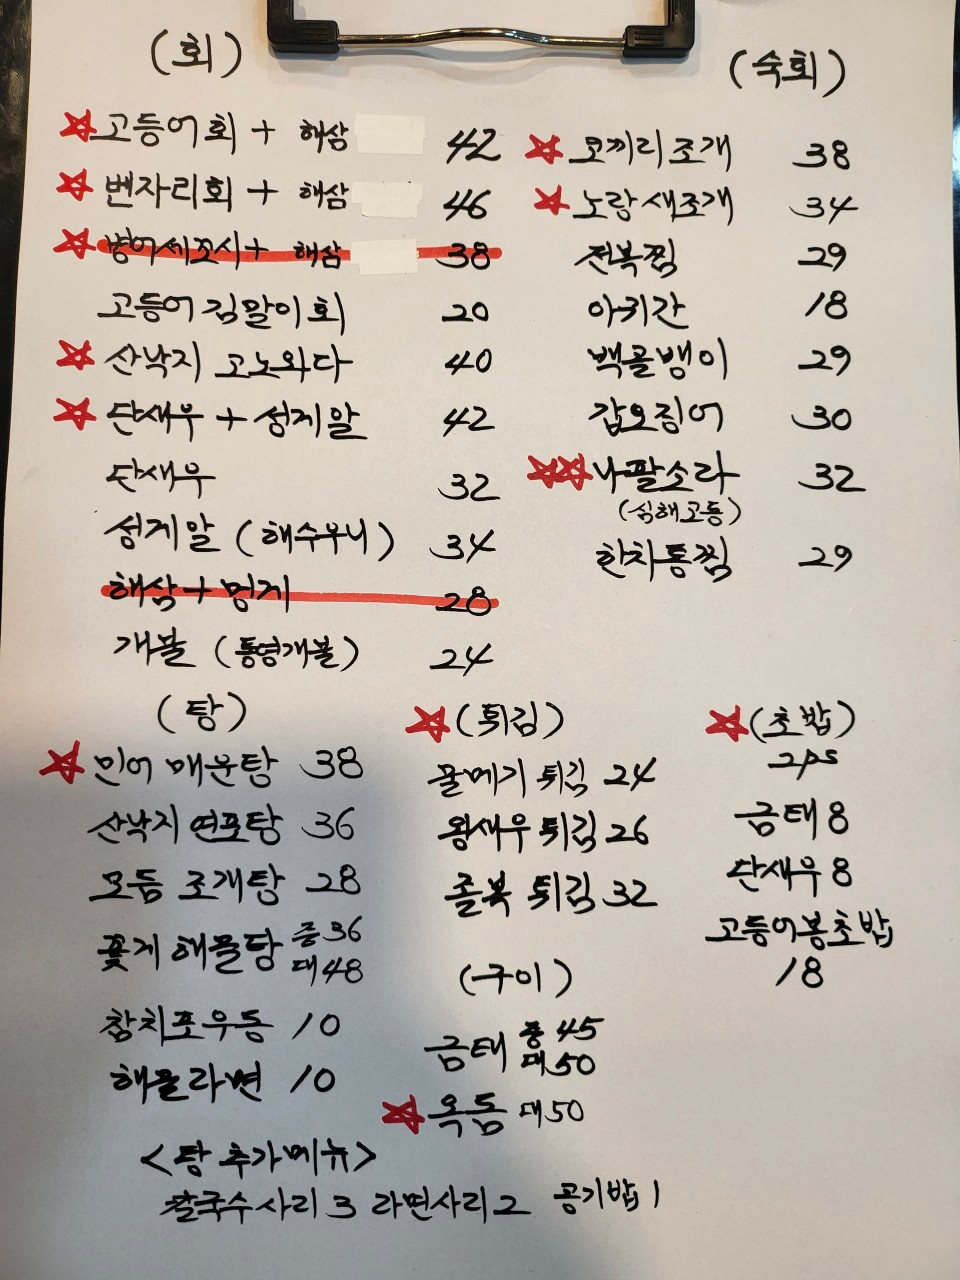 (회)
고등어회 + 해삼 42
벤자리회 + 해삼 46
병어세꼬시 + 해삼 38
고등어김말이회 20
산낙지 고노와다 40
단새우 + 성게알 42
단새우 32
성게알 (해수우니) 34
해삼 + 멍게 28
개불 (통영개불) 24
(숙회)
코끼리조개 38
노랑새조개 34
전복찜 29
아귀간 18
백골뱅이 29
갑오징어 30
나팔소라 32
(심해고동)
한치통찜 29
(탕)
민어 매운탕 38
산낙지 연포탕 36
모듬 조개탕 28
꽃게 해물탕 중36
대48
참치포우동 10
해물라면 10
<탕 추가메뉴>
칼국수사리 3 라면사리 2 공기밥 1
(튀김)
물메기 튀김 24
왕새우 튀김 26
졸복 튀김 32
(구이)
금태 중 45
대 50
옥돔 대 50
(초밥)
2ps
금태 8
단새우 8
고등어봉초밥
18